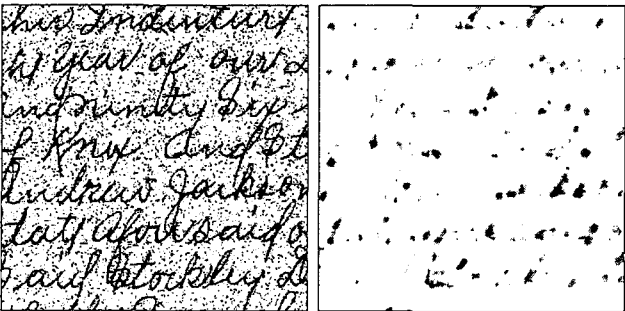 his Indenture
year of our
and ninety Six
f Knox and St
Andrew Jackson
State aforesaid o
said Stockley D